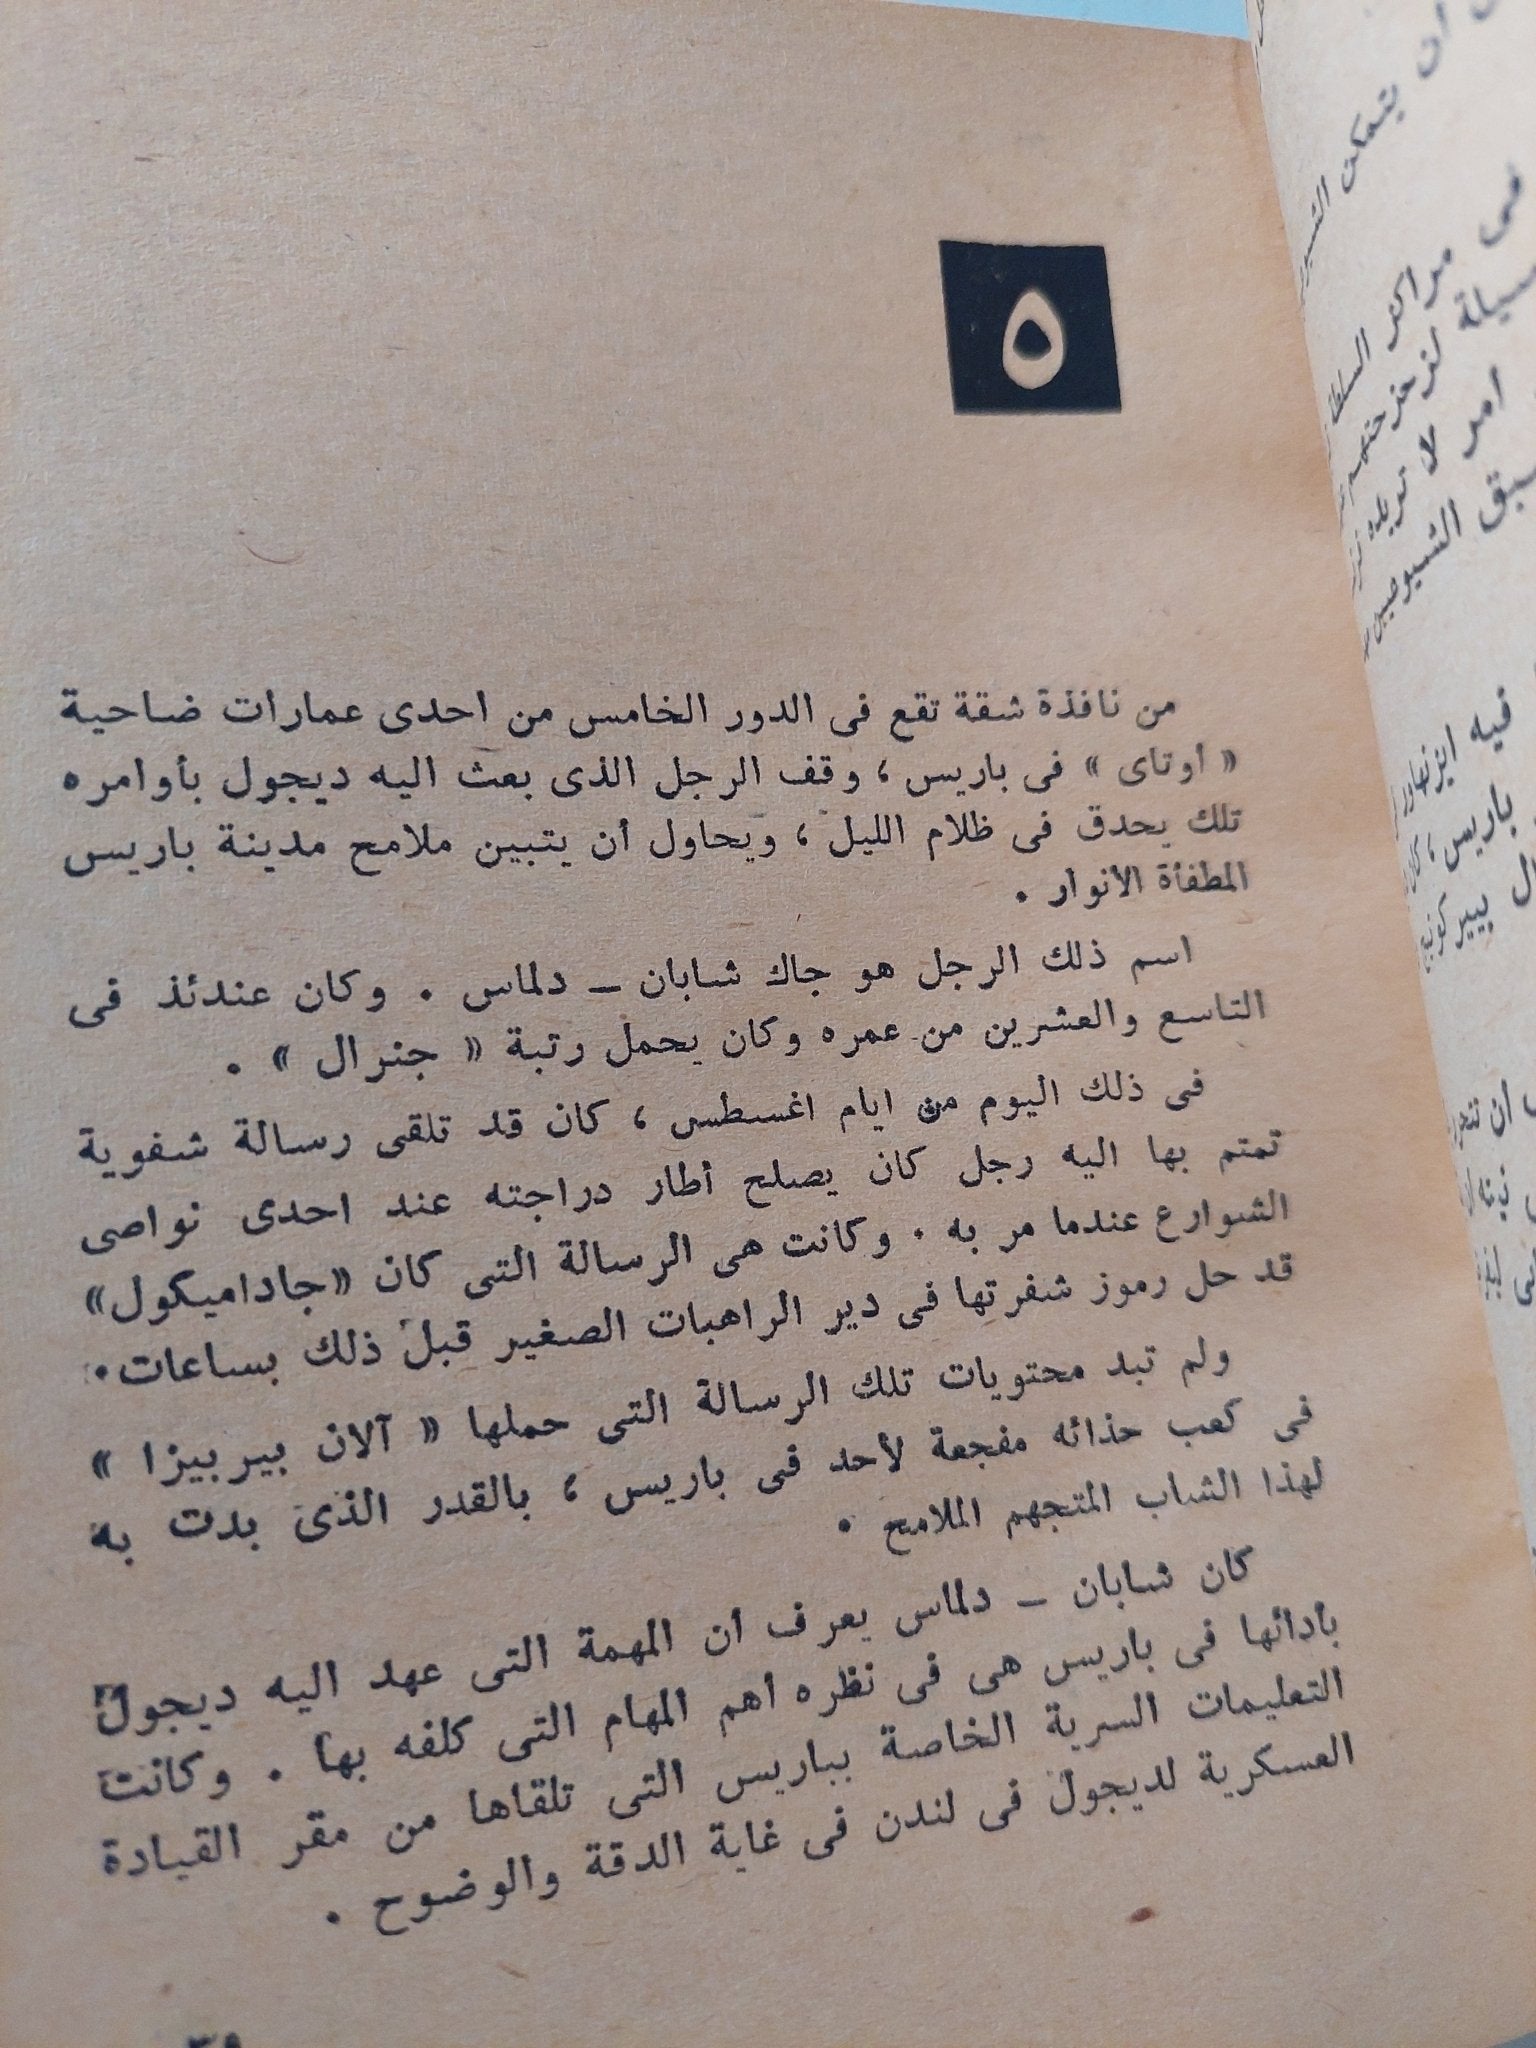 ٥
من نافذة شقة تقع فى الدور الخامس من احدى عمارات ضاحية
« أوتاى » فى باريس ، وقف الرجل الذى بعث اليه ديجول بأوامره
تلك يحدق فى ظلام الليل ، ويحاول أن يتبين ملامح مدينة باريس
المطفأة الأنوار .
اسم ذلك الرجل هو جاك شابان ــ دلماس . وكان عندئذ فى
التاسع والعشرين من عمره وكان يحمل رتبة « جنرال » .
فى ذلك اليوم من ايام اغسطس ، كان قد تلقى رسالة شفوية
تمتم بها اليه رجل كان يصلح أطار دراجته عند احدى نواصى
الشوارع عندما مر به . وكانت هى الرسالة التى كان «جاداميكول»
قد حل رموز شفرتها فى دير الراهبات الصغير قبل ذلك بساعات .
ولم تبد محتويات تلك الرسالة التى حملها « آلان بيربيزا »
فى كعب حذائه مفجعة لأحد فى باريس ، بالقدر الذى بدت به
لهذا الشاب المتجهم الملامح .
كان شابان ــ دلماس يعرف أن المهمة التى عهد اليه ديجول
بأدائها فى باريس هى فى نظره أهم المهام التى كلفه بها . وكانت
التعليمات السرية الخاصة بباريس التى تلقاها من مقر القيادة
العسكرية لديجول فى لندن فى غاية الدقة والوضوح .
ان يتمكن
فى مراكز
امر لا تريده
فيه ايزنهاور
باريس ، كان
بيير
ان